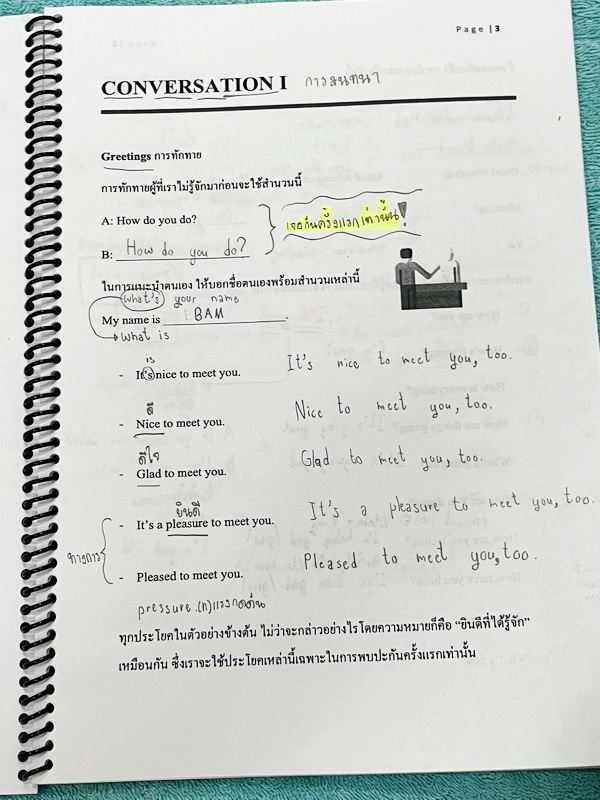 Page | 3
CONVERSATION I การสนทนา
Greetings การทักทาย
การทักทายผู้ที่เราไม่รู้จักมาก่อนจะใช้สำนวนนี้
A: How do you do?
เจอกันครั้งแรกเท่านั้น!
B: How do you do?
ในการแนะนำตนเอง ให้บอกชื่อตนเองพร้อมสำนวนเหล่านี้
What's your name
My name is BAM.
What is
is
- It's nice to meet you. It's nice to meet you, too.
ดี
- Nice to meet you. Nice to meet you, too.
ดีใจ
- Glad to meet you. Glad to meet you, too.
ยินดี
- It's a pleasure to meet you. It's a pleasure to meet you, too.
ทางการ
- Pleased to meet you. Pleased to meet you, too.
pressure (n) แรงกดดัน
ทุกประโยคในตัวอย่างข้างต้น ไม่ว่าจะกล่าวอย่างไรโดยความหมายก็คือ “ยินดีที่ได้รู้จัก”
เหมือนกัน ซึ่งเราจะใช้ประโยคเหล่านี้เฉพาะในการพบปะกันครั้งแรกเท่านั้น